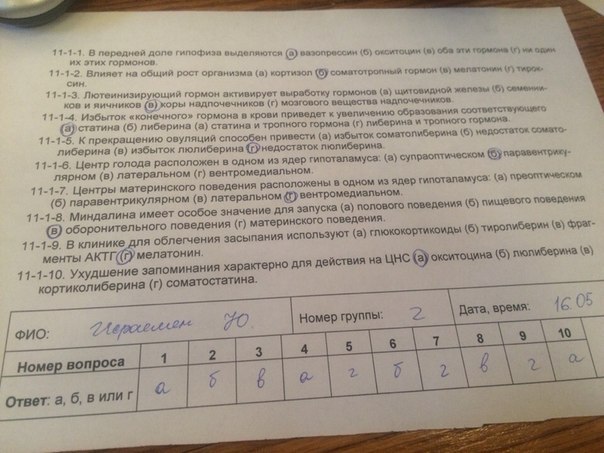 11-1-1. В передней доле гипофиза выделяются (а) вазопрессин (б) окситоцин (в) оба эти гормона (г) ни один
их этих гормонов.
11-1-2. Влияет на общий рост организма (а) кортизол (б) соматотропный гормон (в) мелатонин (г) тирок-
син.
11-1-3. Лютеинизирующий гормон активирует выработку гормонов (а) щитовидной железы (б) семенни-
ков и яичников (в) коры надпочечников (г) мозгового вещества надпочечников.
11-1-4. Избыток «конечного» гормона в крови приведет к увеличению образования соответствующего
(а) статина (б) либерина (а) статина и тропного гормона (г) либерина и тропного гормона.
11-1-5. К прекращению овуляций способен привести (а) избыток соматолиберина (б) недостаток сомато-
либерина (в) избыток люлиберина (г) недостаток люлиберина.
11-1-6. Центр голода расположен в одном из ядер гипоталамуса: (а) супраоптическом (б) паравентрику-
лярном (в) латеральном (г) вентромедиальном.
11-1-7. Центры материнского поведения расположены в одном из ядер гипоталамуса: (а) преоптическом
(б) паравентрикулярном (в) латеральном (г) вентромедиальном.
11-1-8. Миндалина имеет особое значение для запуска (а) полового поведения (б) пищевого поведения
(в) оборонительного поведения (г) материнского поведения.
11-1-9. В клинике для облегчения засыпания используют (а) глюкокортикоиды (б) тиролиберин (в) фраг-
менты АКТГ (г) мелатонин.
11-1-10. Ухудшение запоминания характерно для действия на ЦНС (а) окситоцина (б) люлиберина (в)
кортиколиберина (г) соматостатина.
ФИО: Ю. Номер группы: 2 Дата, время: 16.05
Номер вопроса 1 2 3 4 5 6 7 8 9 10
Ответ: а, б, в или г а б в а г б г в г а